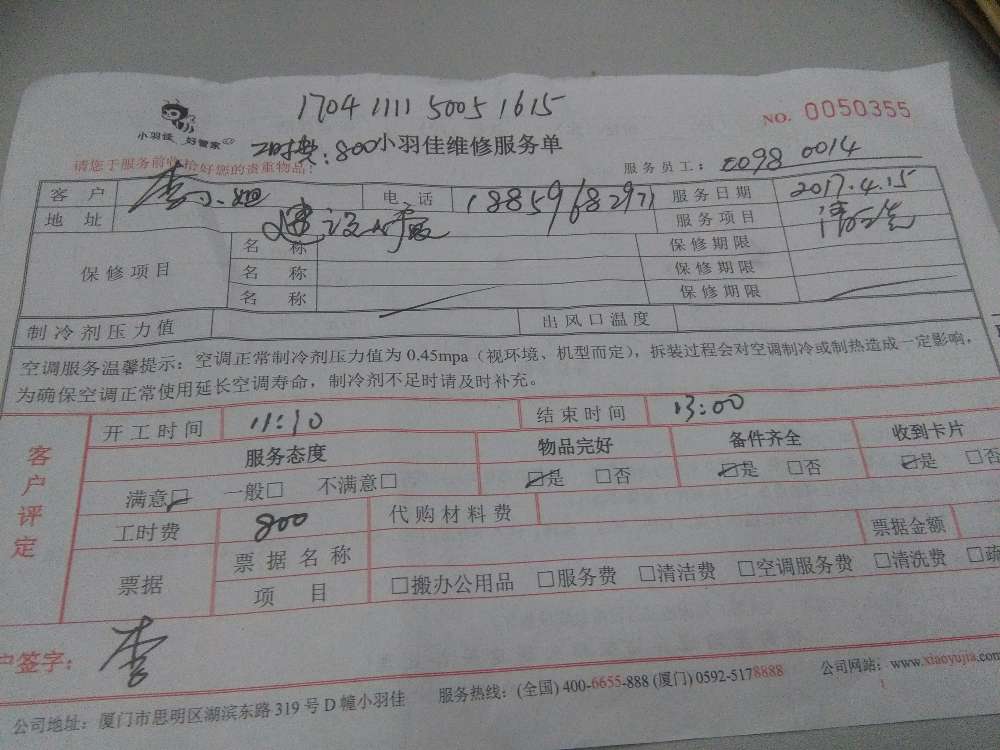 1704 1111 5005 1615
NO. 0050355
小羽佳 好管家
工时费:800 小羽佳维修服务单
请您于服务前收拾好您的贵重物品!
服务员工: 0098 0014
客 户 李小姐 电 话 18859682971 服务日期 2017.4.15
地 址 建设 服务项目 清洗
保修项目 名 称 保修期限
名 称 保修期限
名 称 保修期限
制冷剂压力值 出风口温度
空调服务温馨提示:空调正常制冷剂压力值为0.45mpa(视环境、机型而定),拆装过程会对空调制冷或制热造成一定影响,
为确保空调正常使用延长空调寿命,制冷剂不足时请及时补充。
客户评定
开工时间 11:10 结束时间 13:00
服务态度 物品完好 备件齐全 收到卡片
满意☑ 一般□ 不满意□ ☑是 □否 ☑是 □否 ☑是 □否
工时费 800 代购材料费
票据 票据名称 票据金额
项 目 □搬办公用品 □服务费 □清洁费 □空调服务费 □清洗费 □疏
户签字: 李
公司地址:厦门市思明区湖滨东路319号D幢小羽佳 服务热线:(全国)400-6655-888(厦门)0592-5178888 公司网站:www.xiaoyujia.com